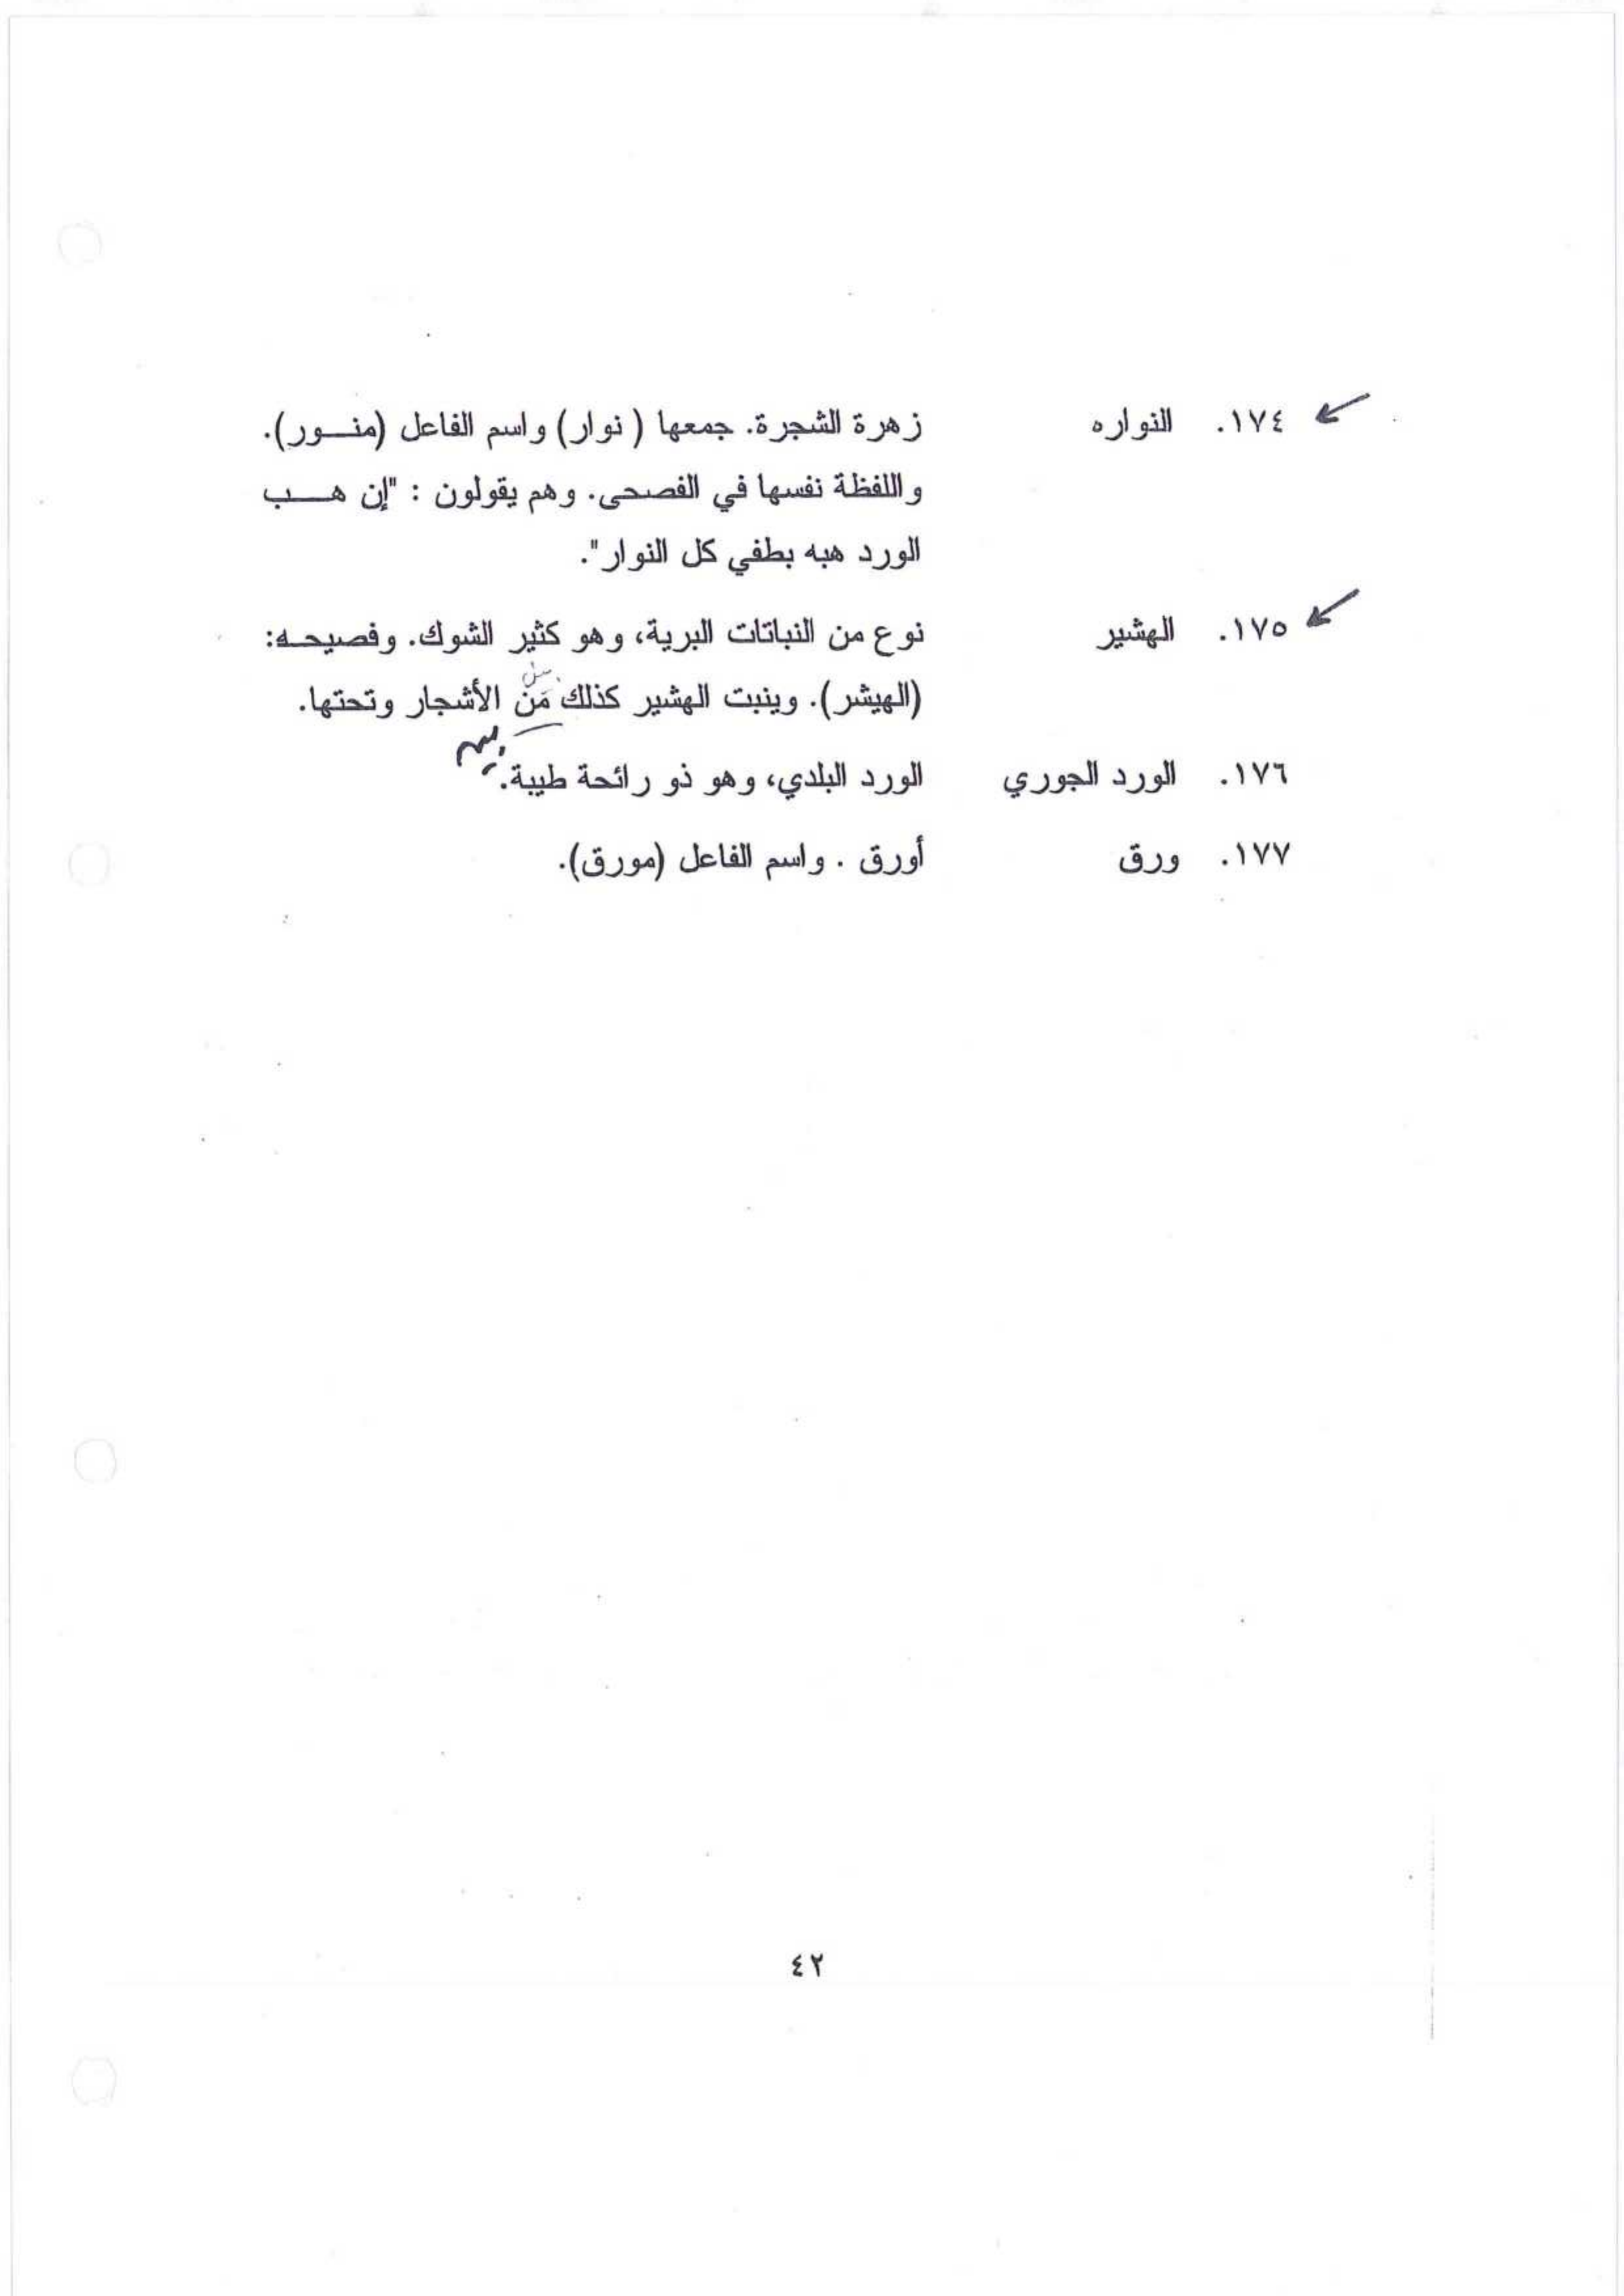 ١٧٤. النواره زهرة الشجرة. جمعها ( نوار) واسم الفاعل (منور).
واللفظة نفسها في الفصحى. وهم يقولون : "إن هب
الورد هبه بطفي كل النوار".
١٧٥. الهشير نوع من النباتات البرية، وهو كثير الشوك. وفصيحه:
(الهيشر). وينبت الهشير كذلك مَن الأشجار وتحتها.
١٧٦. الورد الجوري الورد البلدي، وهو ذو رائحة طيبة.
١٧٧. ورق أورق . واسم الفاعل (مورق).
٤٢